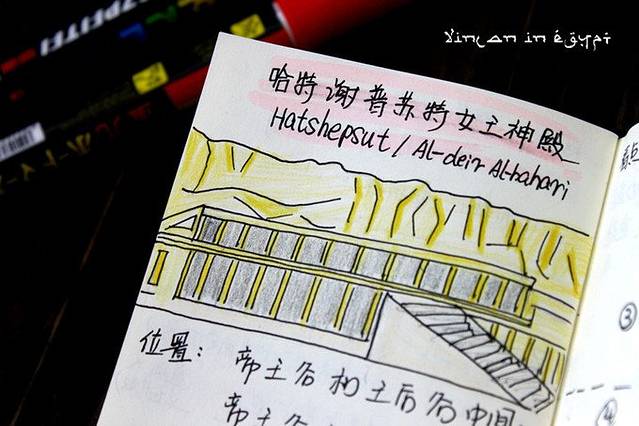 Vincan in égypt
哈特谢普苏特女王神殿
Hatshepsut / Al-deir Al-bahari
位置: 帝王谷和王后谷中间
帝王谷
③
④